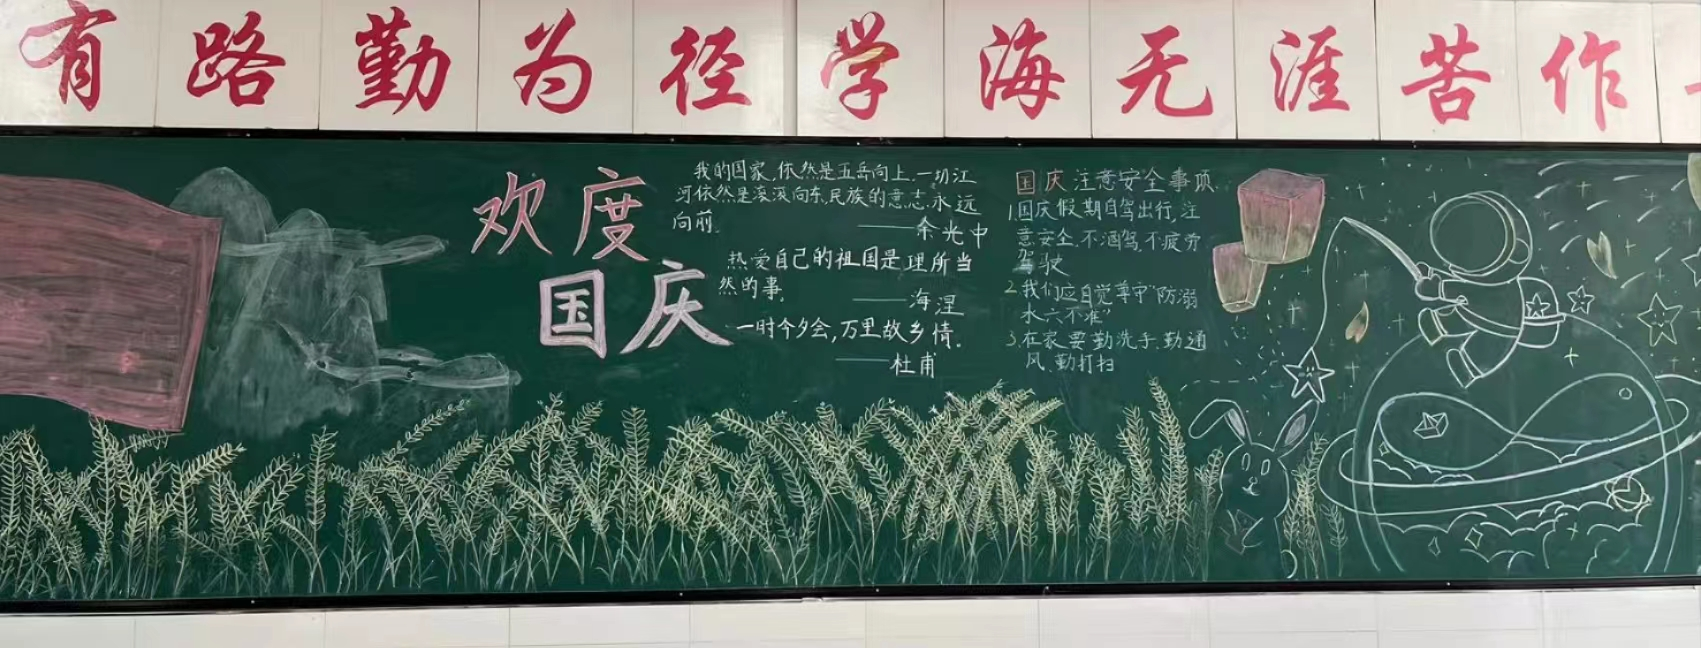 有路勤为径学海无涯苦作
欢度
国庆
我的国家,依然是五岳向上,一切江
河依然是滚滚向东,民族的意志,永远
向前。
——余光中
热爱自己的祖国是理所当
然的事。
——海涅
一时今夕会,万里故乡情。
——杜甫
国庆注意安全事项
1.国庆假期自驾出行,注
意安全,不酒驾,不疲劳
驾驶
2.我们应自觉遵守"防溺
水六不准"
3.在家要勤洗手,勤通
风,勤打扫